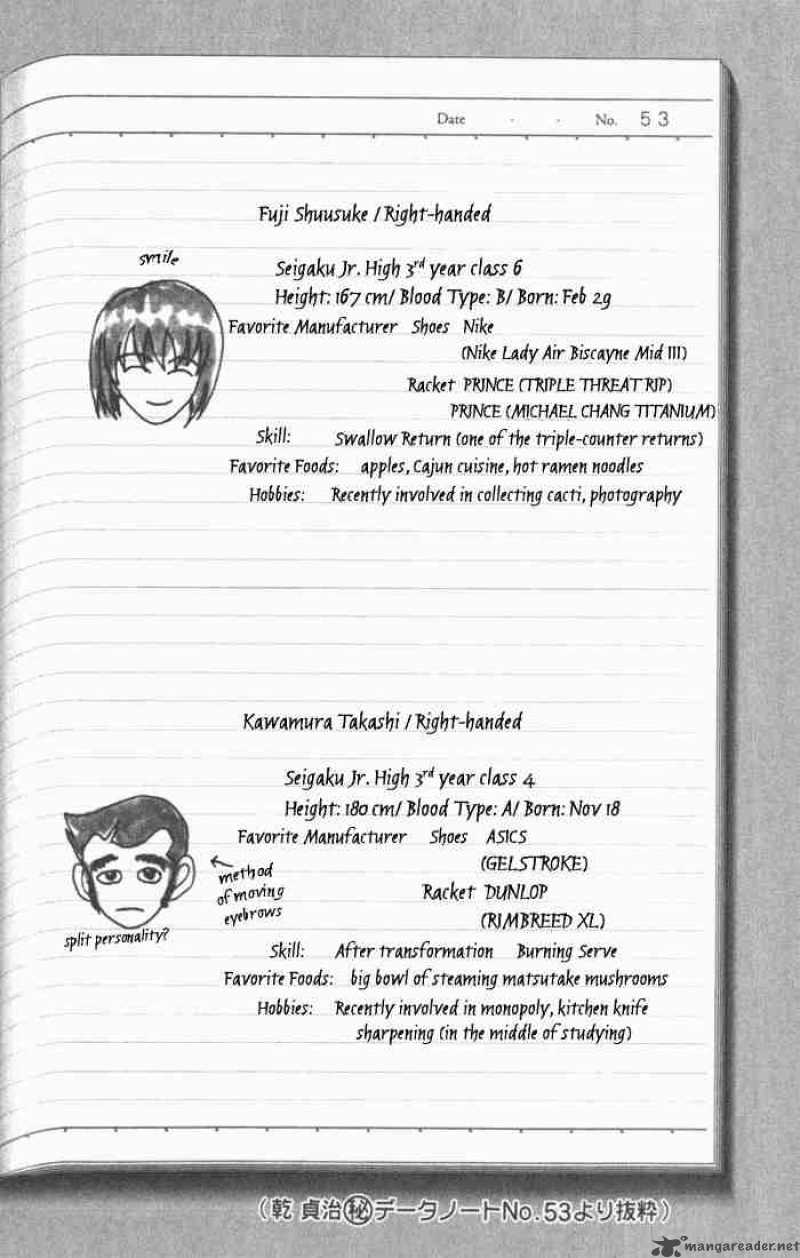 Date . . No. 53
Fuji Shuusuke / Right-handed
smile
Seigaku Jr. High 3rd year class 6
Height: 167 cm/ Blood Type: B/ Born: Feb 29
Favorite Manufacturer Shoes Nike
(Nike Lady Air Biscayne Mid III)
Racket PRINCE (TRIPLE THREAT RIP)
PRINCE (MICHAEL CHANG TITANIUM)
Skill: Swallow Return (one of the triple-counter returns)
Favorite Foods: apples, Cajun cuisine, hot ramen noodles
Hobbies: Recently involved in collecting cacti, photography
Kawamura Takashi / Right-handed
Seigaku Jr. High 3rd year class 4
Height: 180 cm/ Blood Type: A/ Born: Nov 18
Favorite Manufacturer Shoes ASICS
(GELSTROKE)
Racket DUNLOP
(RIMBREED XL)
method
of moving
eyebrows
split personality?
Skill: After transformation Burning Serve
Favorite Foods: big bowl of steaming matsutake mushrooms
Hobbies: Recently involved in monopoly, kitchen knife
sharpening (in the middle of studying)
(乾 貞治㊙データノートNo.53より抜粋)
mangareader.net